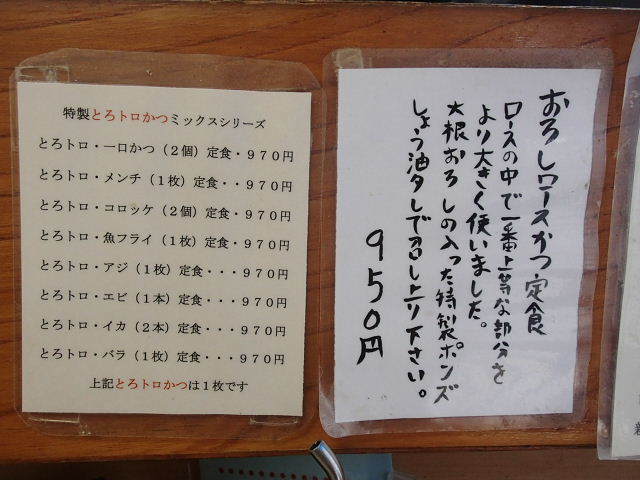 特製とろトロかつミックスシリーズ
とろトロ・一口かつ（２個）定食・９７０円
とろトロ・メンチ（１枚）定食・・９７０円
とろトロ・コロッケ（２個）定食・９７０円
とろトロ・魚フライ（１枚）定食・９７０円
とろトロ・アジ（１枚）定食・・・９７０円
とろトロ・エビ（１本）定食・・・９７０円
とろトロ・イカ（２本）定食・・・９７０円
とろトロ・バラ（１枚）定食・・・９７０円
上記とろトロかつは１枚です
おろしロースかつ定食
ロースの中で一番上等な部分を
より大きく使いました。
大根おろしの入った特製ポンズ
しょう油タレで召し上り下さい。
９５０円